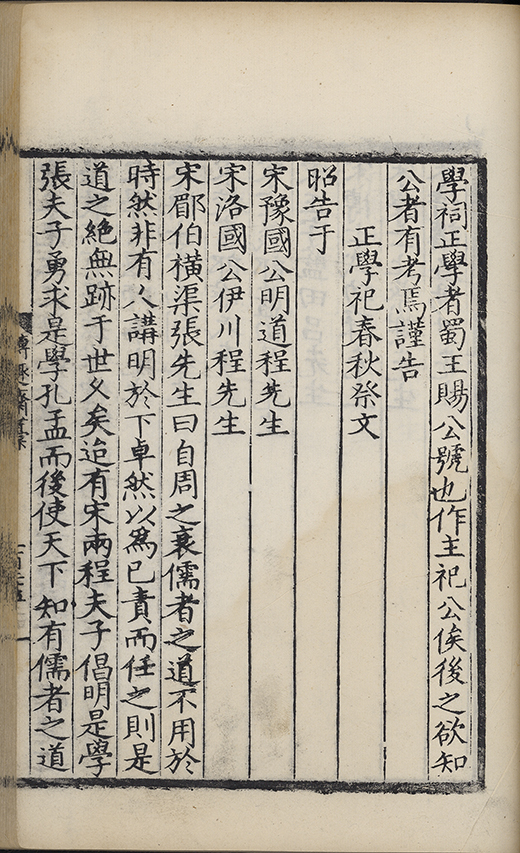 學祠正學者蜀王賜公號也作主祀公俟後之欲知
公者有考焉謹告
正學祀春秋祭文
昭告于
宋豫國公明道程先生
宋洛國公伊川程先生
宋郿伯橫渠張先生曰自周之衰儒者之道不用於
時然非有人講明於下卓然以為已責而任之則是
道之絕無跡于世久矣迨有宋兩程夫子倡明是學
張夫子勇求是學孔孟而後使天下知有儒者之道